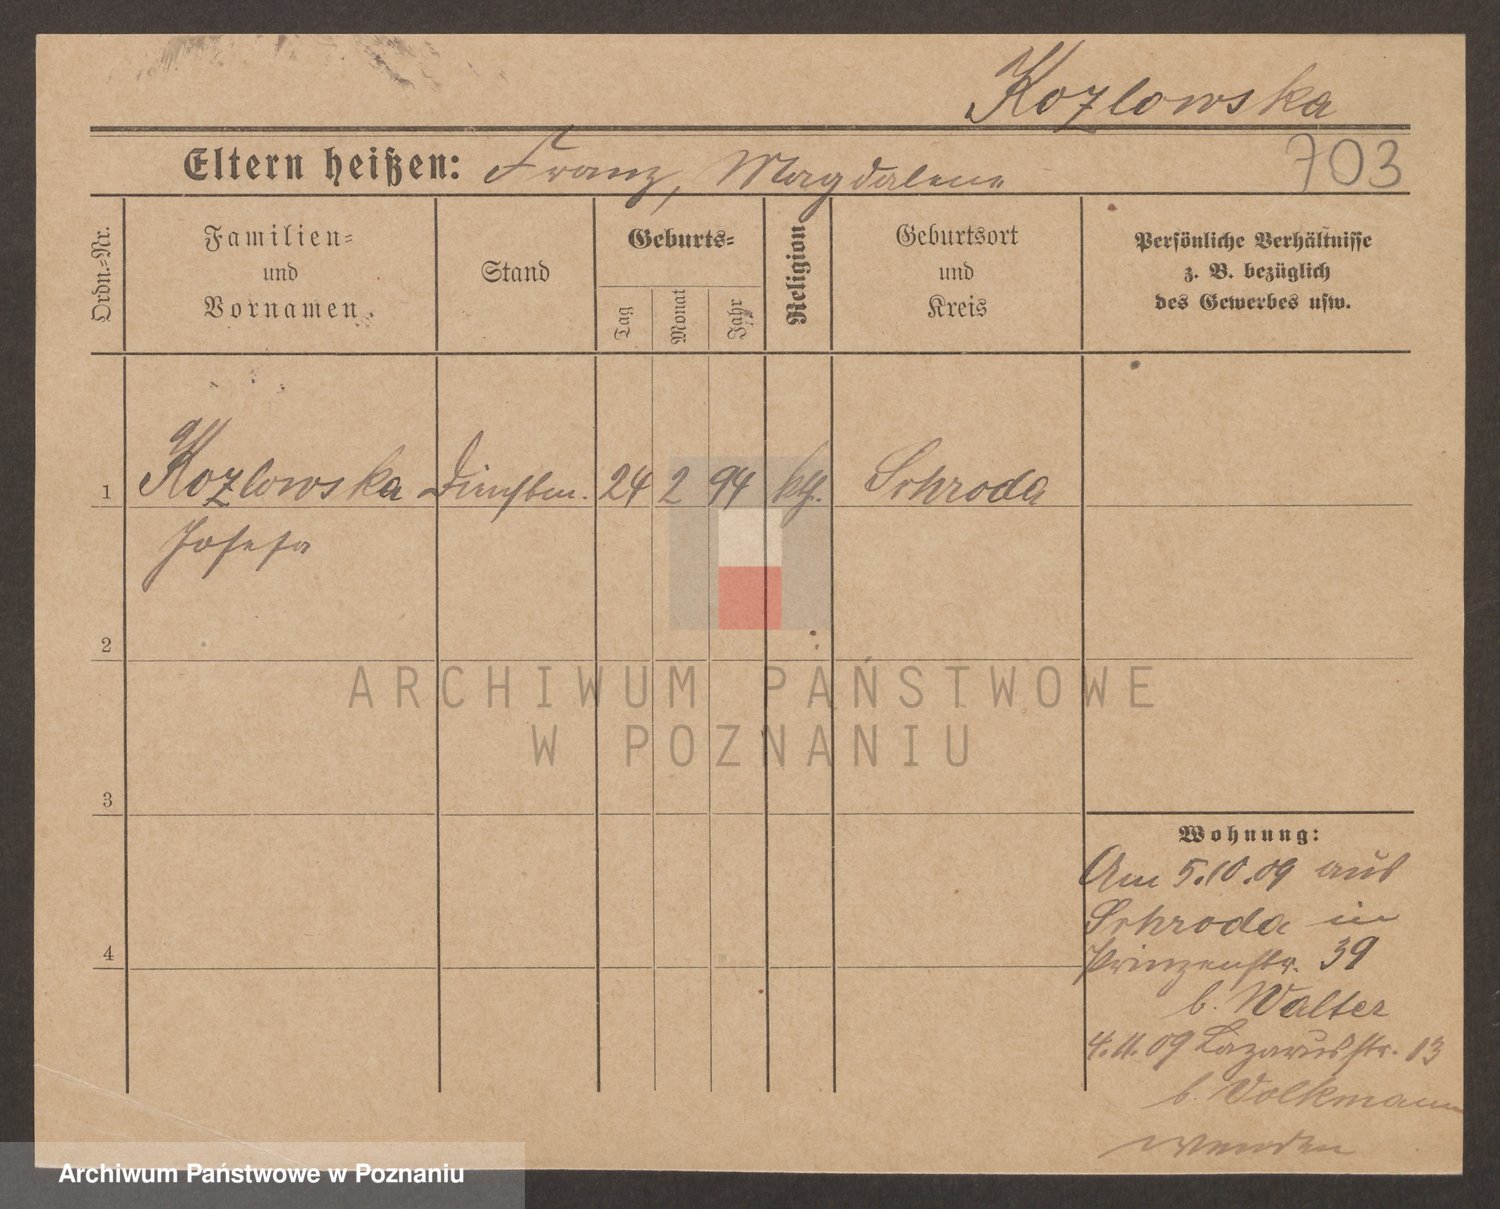 Kozlowska
Eltern heißen: Franz, Magdalena
703
Ordn.=Nr.
Familien=
und
Vornamen.
Stand
Geburts=
Tag
Monat
Jahr
Religion
Geburtsort
und
Kreis
Persönliche Verhältnisse
z. B. bezüglich
des Gewerbes usw.
1 Kozlowska Dienstm. 24 2 94 kth. Schroda
Josefa
2
3
4
ARCHIWUM PAŃSTWOWE
W POZNANIU
Wohnung:
Am 5.10.09 aus
Schroda in
Prinzenstr. 39
b. Walter
4.11.09 Lazarusstr. 13
b. Volkmann
wenden
Archiwum Państwowe w Poznaniu